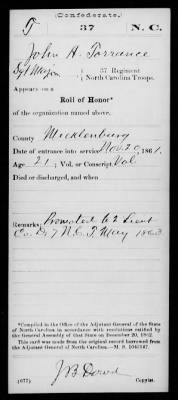 (Confederate.)
T 37 N. C.
John H. Torrance
Sgt Major, 37 Regiment
North Carolina Troops.
Appears on a
Roll of Honor*
of the organization named above.
County Mecklenburg
Date of entrance into service Nov. 20, 1861.
Age 21; Vol. or Conscript Vol
Died or discharged, and when
Remarks: Promoted to 2 Lieut
Co. D. 7 N.C.T. May 1863
*Compiled in the Office of the Adjutant General of the State
of North Carolina in accordance with resolutions ratified by
the General Assembly of that State on December 20, 1862.
This card was made from the original record borrowed from
the Adjutant General of North Carolina.—M. S.
J B Dowd
(677) Copyist.